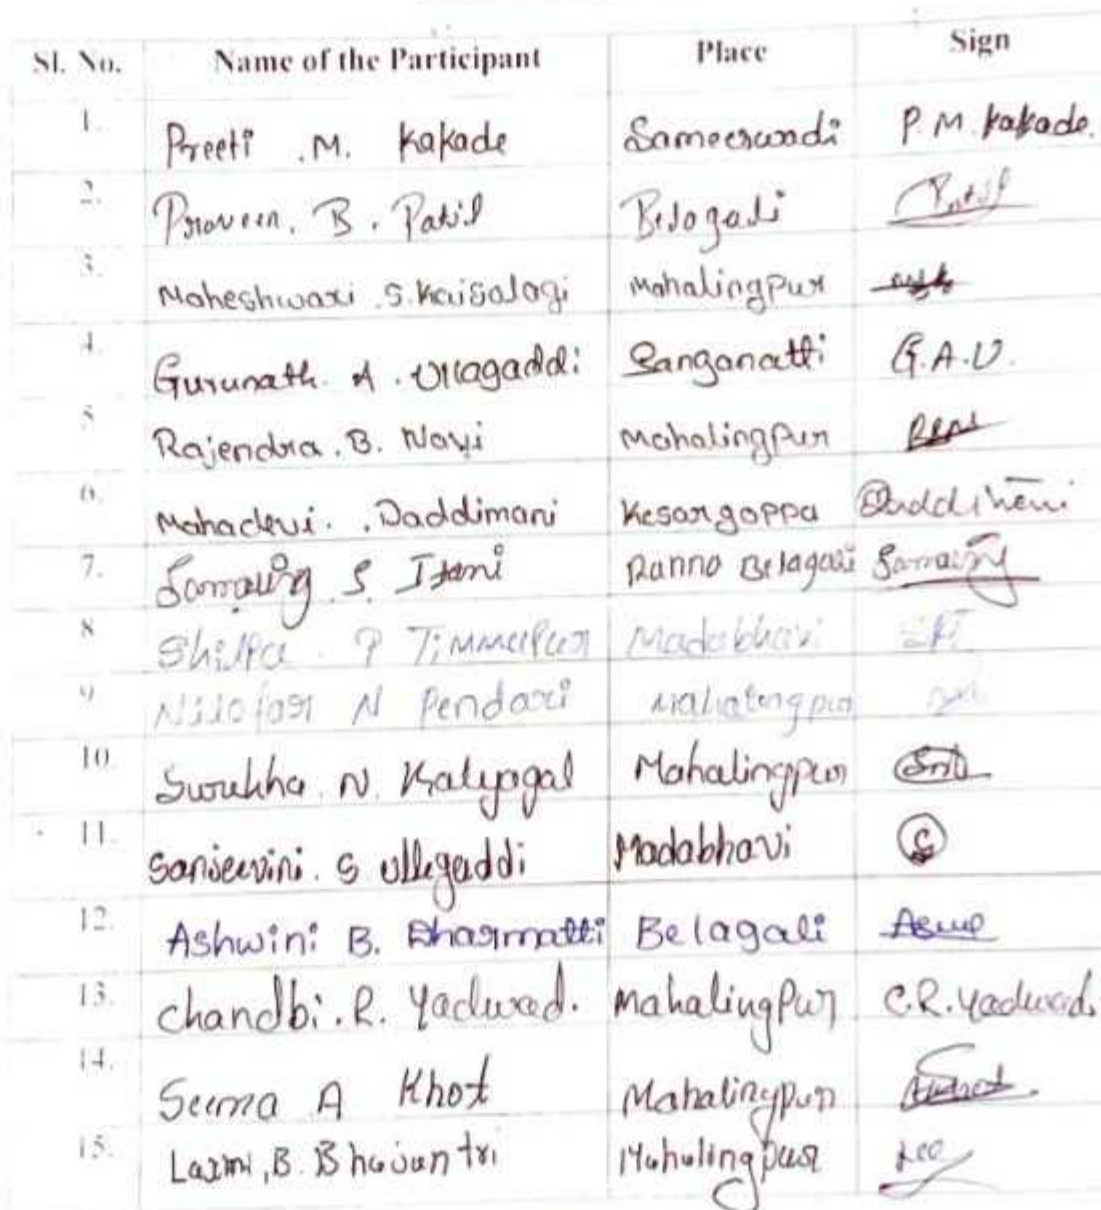 Sl. No. Name of the Participant Place Sign
1. Preeti .M. Kakade Sameerwadi P.M. Kakade.
2. Praveen. B. Patil Belagali Patil
3. Maheshwari .S. Kaisalagi Mahalingpur
4. Gurunath. A. Ullagaddi Sanganatti G.A.U.
5. Rajendra. B. Navi Mahalingpur
6. Mahadevi. . Daddimani Kesargoppa
7. S. Itani Ranna Belagali
8 Shilpa . P Timmapur Madabhavi
9) Nilofar N Pendari Mahalingpur
10. Surekha. N. Kalyagal Mahalingpur
11. Sanjeevini. S Ullegaddi Madabhavi S
12. Ashwini B. Dharmatti Belagali
13. Chandbi. R. Yadwad. Mahalingpur C.R. Yadwad.
14. Seema A Khot Mahalingpur
15. Laxmi, B. Bhajantri Mahalingpur